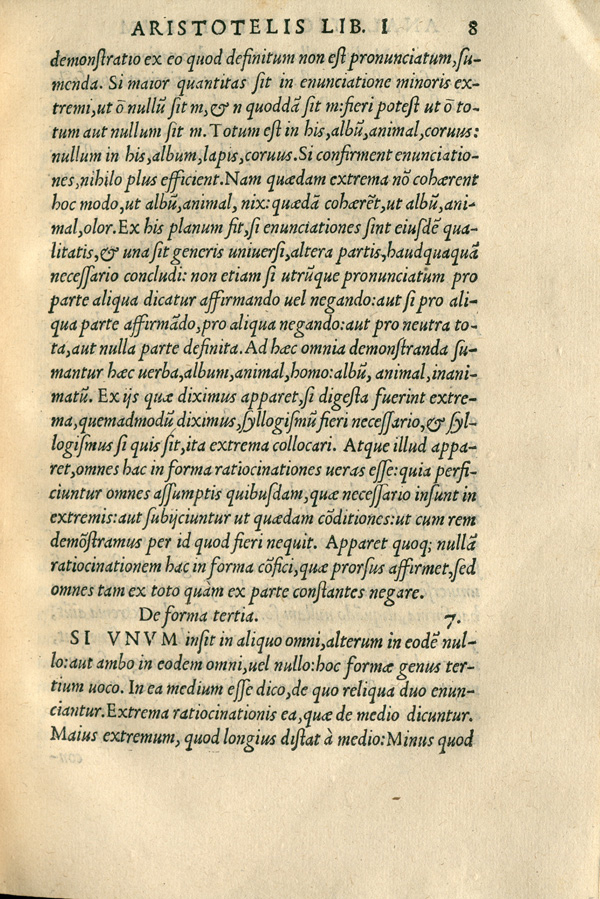 ARISTOTELIS LIB. I 8
demonſtratio ex eo quod definitum non eſt pronunciatum, ſu-
menda. Si maior quantitas ſit in enunciatione minoris ex-
tremi, ut ō nullū ſit m, & n quoddā ſit m: fieri poteſt ut ō to-
tum aut nullum ſit m. Totum eſt in his, albū, animal, coruus:
nullum in his, album, lapis, coruus. Si confirment enunciatio-
nes, nihilo plus efficient. Nam quædam extrema nō cohærent
hoc modo, ut albū, animal, nix: quædā cohærēt, ut albū, ani-
mal, olor. Ex his planum fit, ſi enunciationes ſint eiuſdē qua-
litatis, & una ſit generis uniuerſi, altera partis, haudquaquā
neceſſario concludi: non etiam ſi utrūque pronunciatum pro
parte aliqua dicatur affirmando uel negando: aut ſi pro ali-
qua parte affirmādo, pro aliqua negando: aut pro neutra to-
ta, aut nulla parte definita. Ad hæc omnia demonſtranda ſu-
mantur hæc uerba, album, animal, homo: albū, animal, inani-
matū. Ex ijs quæ diximus apparet, ſi digeſta fuerint extre-
ma, quemadmodū diximus, ſyllogiſmū fieri neceſſario, & ſyl-
logiſmus ſi quis ſit, ita extrema collocari. Atque illud appa-
ret, omnes hac in forma ratiocinationes ueras eſſe: quia perfi-
ciuntur omnes aſſumptis quibuſdam, quæ neceſſario inſunt in
extremis: aut ſubijciuntur ut quædam cōditiones: ut cum rem
demōſtramus per id quod fieri nequit. Apparet quoq; nullā
ratiocinationem hac in forma cōfici, quæ prorſus affirmet, ſed
omnes tam ex toto quàm ex parte conſtantes negare.
De forma tertia. 7.
SI VNVM inſit in aliquo omni, alterum in eodē nul-
lo: aut ambo in eodem omni, uel nullo: hoc formæ genus ter-
tium uoco. In ea medium eſſe dico, de quo reliqua duo enun-
ciantur. Extrema ratiocinationis ea, quæ de medio dicuntur.
Maius extremum, quod longius diſtat à medio: Minus quod